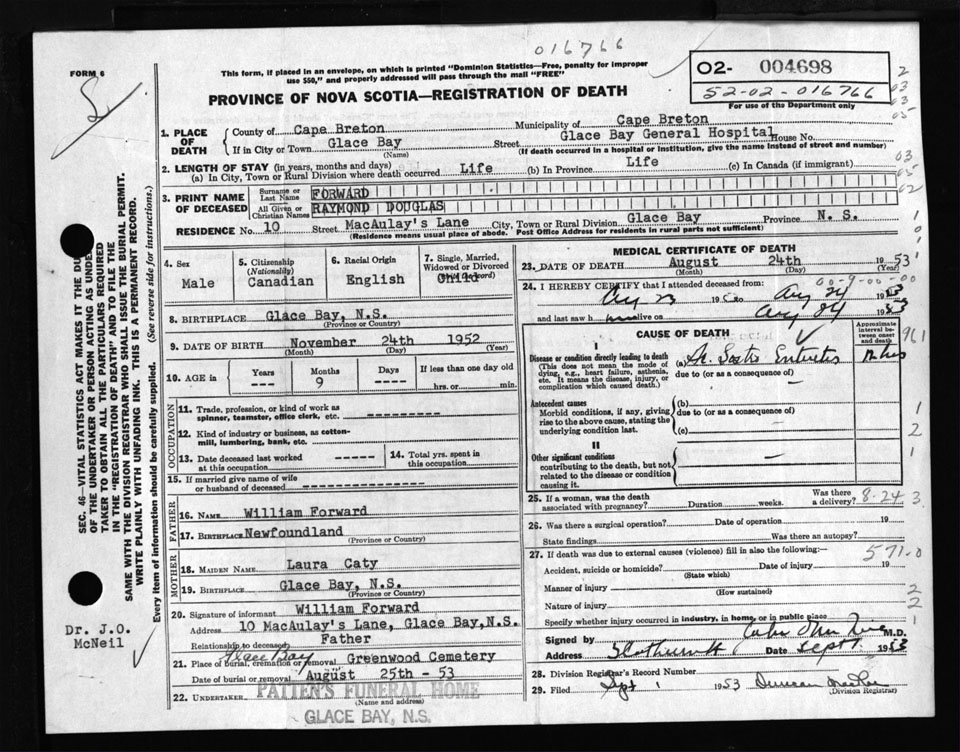 016766
FORM 6
This form, if placed in an envelope, on which is printed "Dominion Statistics—Free, penalty for improper
use $50," and properly addressed will pass through the mail "FREE"
02- 004698
52-02-016766
For use of the Department only
PROVINCE OF NOVA SCOTIA—REGISTRATION OF DEATH
1. PLACE OF DEATH
County of Cape Breton Municipality of Cape Breton
If in City or Town Glace Bay Street Glace Bay General Hospital House No.
(Name) (If death occurred in a hospital or institution, give the name instead of street and number)
2. LENGTH OF STAY (in years, months and days)
(a) In City, Town or Rural Division where death occurred Life (b) In Province Life (c) In Canada (if immigrant)
3. PRINT NAME OF DECEASED
Surname or Last Name FORWARD
All Given or Christian Names RAYMOND DOUGLAS
RESIDENCE No. 10 Street MacAulay's Lane City, Town or Rural Division Glace Bay Province N. S.
(Residence means usual place of abode. Post Office Address for residents in rural parts not sufficient)
4. Sex Male
5. Citizenship (Nationality) Canadian
6. Racial Origin English
7. Single, Married, Widowed or Divorced
Child
8. BIRTHPLACE Glace Bay, N.S.
(Province or Country)
9. DATE OF BIRTH November 24th 1952
(Month) (Day) (Year)
10. AGE in Years ---- Months 9 Days ---- If less than one day old
hrs. or min.
OCCUPATION
11. Trade, profession, or kind of work as
spinner, teamster, office clerk, etc. -----------
12. Kind of industry or business, as cotton-
mill, lumbering, bank, etc. -----------
13. Date deceased last worked
at this occupation -----
14. Total yrs. spent in
this occupation -----
15. If married give name of wife
or husband of deceased
FATHER
16. NAME William Forward
17. BIRTHPLACE Newfoundland
(Province or Country)
MOTHER
18. MAIDEN NAME Laura Caty
19. BIRTHPLACE Glace Bay, N.S.
(Province or Country)
20. Signature of informant William Forward
Address 10 MacAulay's Lane, Glace Bay, N.S.
Relationship to deceased Father
Glace Bay
21. Place of burial, cremation or removal Greenwood Cemetery
Date of burial or removal August 25th - 53
22. UNDERTAKER PATTEN'S FUNERAL HOME
(Name and address)
GLACE BAY, N.S.
MEDICAL CERTIFICATE OF DEATH
23. DATE OF DEATH August 24th 1953
(Month) (Day) (Year)
24. I HEREBY CERTIFY that I attended deceased from: 00-9-00-00
Aug 23 19 to Aug 24 1953
and last saw h alive on Aug 24 1953
CAUSE OF DEATH
Approximate interval between onset and death
I
Disease or condition directly leading to death (a) Ac. Gastro Enteritis 12 hrs
(This does not mean the mode of dying, e.g., heart failure, asthenia, etc. It means the disease, injury, or complication which caused death.)
due to (or as a consequence of)
Antecedent causes (b)
Morbid conditions, if any, giving rise to the above cause, stating the underlying condition last.
due to (or as a consequence of)
(c)
II
Other significant conditions
contributing to the death, but not related to the disease or condition causing it.
25. If a woman, was the death
associated with pregnancy? Duration weeks. Was there a delivery? 8-24 3
26. Was there a surgical operation? Date of operation 19
State findings Was there an autopsy?
27. If death was due to external causes (violence) fill in also the following: 571-0
Accident, suicide or homicide? Date of injury 19
(State which)
Manner of injury
(How sustained)
Nature of injury
Specify whether injury occurred in industry, in home, or in public place
Signed by M.D.
Address Date Sept 1. 1953
28. Division Registrar's Record Number
29. Filed Sept 1 1953 Duncan
(Division Registrar)
SEC. 46—VITAL STATISTICS ACT MAKES IT THE DU
OF THE UNDERTAKER OR PERSON ACTING AS UNDER
TAKER TO OBTAIN ALL THE PARTICULARS REQUIRED
IN THE "REGISTRATION OF DEATH" AND TO FILE THE
SAME WITH THE DIVISION REGISTRAR WHO SHALL ISSUE THE BURIAL PERMIT.
WRITE PLAINLY WITH UNFADING INK. THIS IS A PERMANENT RECORD.
Every item of information should be carefully supplied. (See reverse side for instructions.)
Dr. J.O.
McNeil